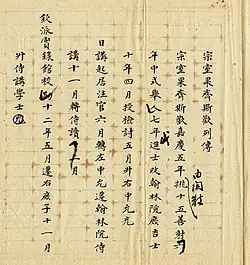 宗室果齊斯歡列傳
宗室果齊斯歡嘉慶五年挑十五善射
年中式舉人七年進士改翰林院庶吉士
十年四月授檢討五月升右中允充
日講起居注官六月轉左中允遷翰林院侍
講十一月轉侍讀十月
欽派實錄館校十二年五月遷右庶子十一月
升侍講學士